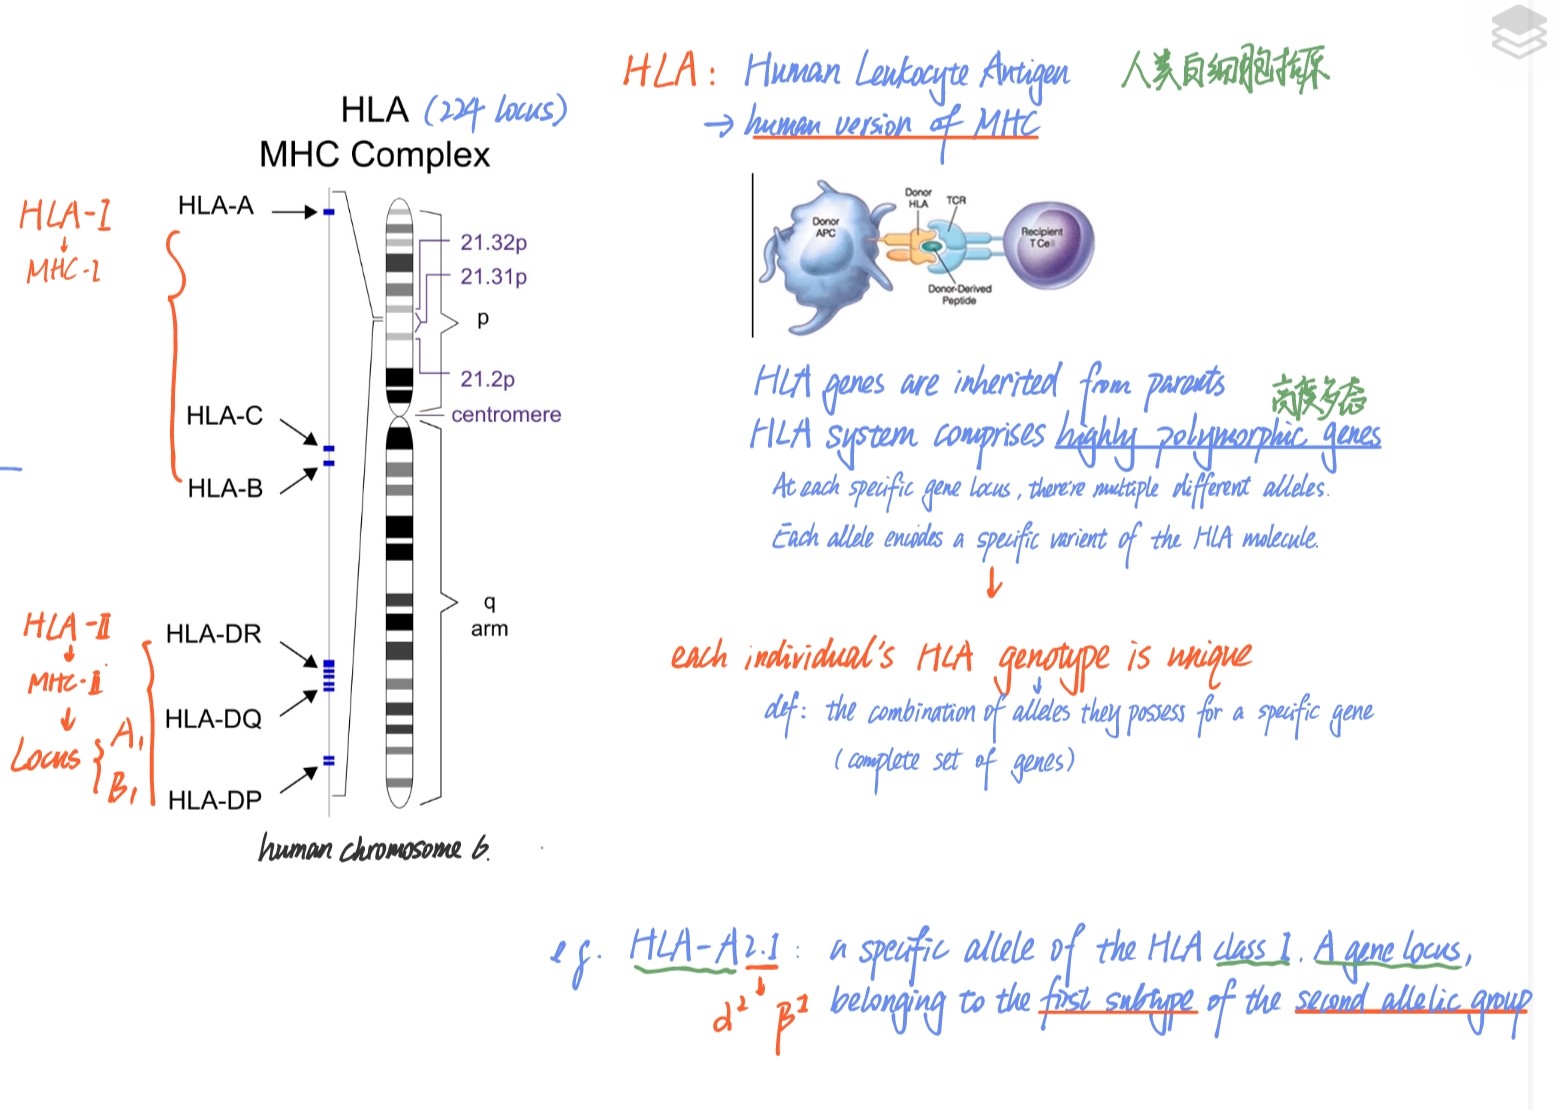 HLA (224 locus)
MHC Complex
HLA-I
↓
MHC-I
HLA-A
HLA-C
HLA-B
HLA-II
↓
MHC-II
↓
Locus { A1
B1
HLA-DR
HLA-DQ
HLA-DP
21.32p
21.31p
p
21.2p
centromere
q
arm
human chromosome 6.
HLA: Human Leukocyte Antigen 人类白细胞抗原
→ human version of MHC
Donor
APC
Donor
HLA
TCR
Recipient
T Cell
Donor-Derived
Peptide
HLA genes are inherited from parents 高度多态
HLA system comprises highly polymorphic genes
At each specific gene locus, there're multiple different alleles.
Each allele encodes a specific varient of the HLA molecule.
↓
each individual's HLA genotype is unique
↓
def: the combination of alleles they possess for a specific gene
(complete set of genes)
eg. HLA-A2.1: a specific allele of the HLA class I. A gene locus,
↓
α² β¹ belonging to the first subtype of the second allelic group